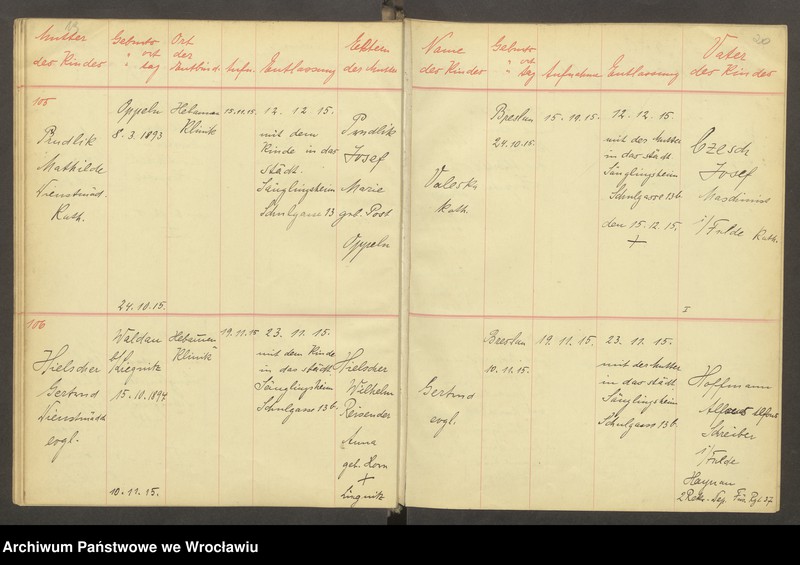 Mutter
der Kinder
Geburts
" ort
" tag
Ort
des
Entbind.
Aufn.
Entlassung
Eltern
der Mutter
105
Prudlik
Mathilde
Dienstmäd.
Kath.
Oppeln
8. 3. 1893
24.10.15.
Hebamen
Klinik
15.11.15.
12. 12. 15.
mit dem
Kinde in das
städt.
Säuglingsheim
Schulgasse 13
Prudlik
Josef
Marie
geb. Post
Oppeln
106
Hielscher
Gertrud
Dienstmädch
evgl.
Waldau
b/
Liegnitz
15.10.1894
10.11.15.
Hebamen
Klinik
19.11.15
23. 11. 15.
mit dem Kinde
in das städt
Säuglingsheim
Schulgasse 13b.
Hielscher
Wilhelm
Reisender
Anna
geb. Horn
+
Liegnitz
20
Name
der Kinder
Geburts
" ort
" tag
Aufnahme
Entlassung
Vater
der Kinder
Valeska
Kath.
Breslau
24.10.15.
12. 12. 15.
mit der Mutter
in das städt
Säuglingsheim
Schulgasse 13b
den 15. 12. 15.
+
Czesch
Josef
i/Felde Kath.
I
Gertrud
evgl.
Breslau
10.11.15.
19. 11. 15.
23. 11. 15.
mit der Mutter
in das städt
Säuglingsheim
Schulgasse 13b.
Hoffmann
Alfons
Schreiber
i/Felde
Haynau
Archiwum Państwowe we Wrocławiu